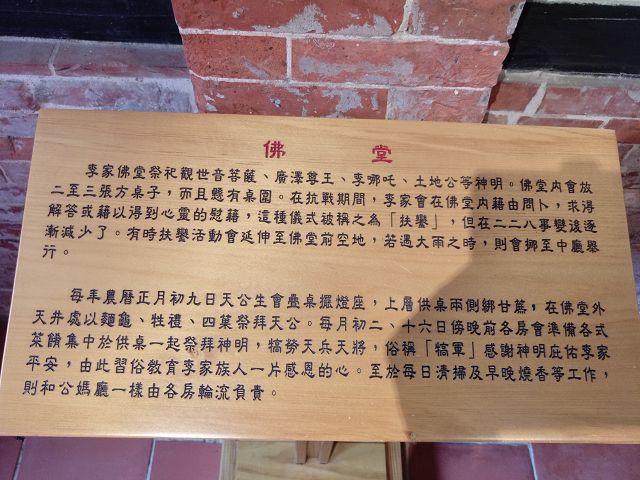 佛堂
李家佛堂祭祀觀世音菩薩、廣澤尊王、李哪吒、土地公等神明。佛堂內會放
二至三張方桌子，而且懸有桌圍。在抗戰期間，李家會在佛堂內藉由問卜，求得
解答或藉以得到心靈的慰藉，這種儀式被稱之為「扶鸞」，但在二二八事變後逐
漸減少了。有時扶鸞活動會延伸至佛堂前空地，若遇大雨之時，則會挪至中廳舉
行。
每年農曆正月初九日天公生會疊桌擺燈座，上層供桌兩側綁甘蔗，在佛堂外
天井處以麵龜、牲禮、四菓祭拜天公。每月初二、十六日傍晚前各房會準備各式
菜餚集中於供桌一起祭拜神明，犒勞天兵天將，俗稱「犒軍」感謝神明庇佑李家
平安，由此習俗教育李家族人一片感恩的心。至於每日清掃及早晚燒香等工作，
則和公媽廳一樣由各房輪流負責。